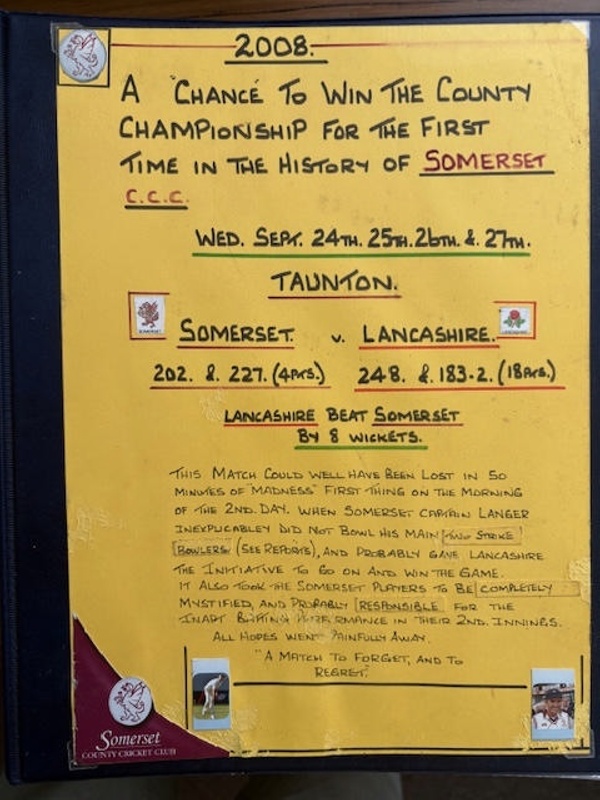 2008.
A "CHANCE" TO WIN THE COUNTY
CHAMPIONSHIP FOR THE FIRST
TIME IN THE HISTORY OF SOMERSET
C.C.C.
WED. SEPT. 24TH. 25TH. 26TH. & 27TH.
TAUNTON.
SOMERSET. v. LANCASHIRE.
202. & 227. (4PTS.) 248. & 183-2. (18PTS.)
LANCASHIRE BEAT SOMERSET
BY 8 WICKETS.
THIS MATCH COULD WELL HAVE BEEN LOST IN 50
MINUTES OF "MADNESS" FIRST THING ON THE MORNING
OF THE 2ND. DAY. WHEN SOMERSET CAPTAIN LANGER
INEXPLICABLEY DID NOT BOWL HIS MAIN TWO STRIKE
BOWLERS (SEE REPORTS), AND PROBABLY GAVE LANCASHIRE
THE INITIATIVE TO GO ON AND WIN THE GAME.
IT ALSO TOOK THE SOMERSET PLAYERS TO BE COMPLETELY
MYSTIFIED, AND PROBABLY RESPONSIBLE FOR THE
INAPT BATTING PERFORMANCE IN THEIR 2ND. INNINGS.
ALL HOPES WENT PAINFULLY AWAY.
"A MATCH TO FORGET, AND TO
REGRET."
Somerset
COUNTY CRICKET CLUB